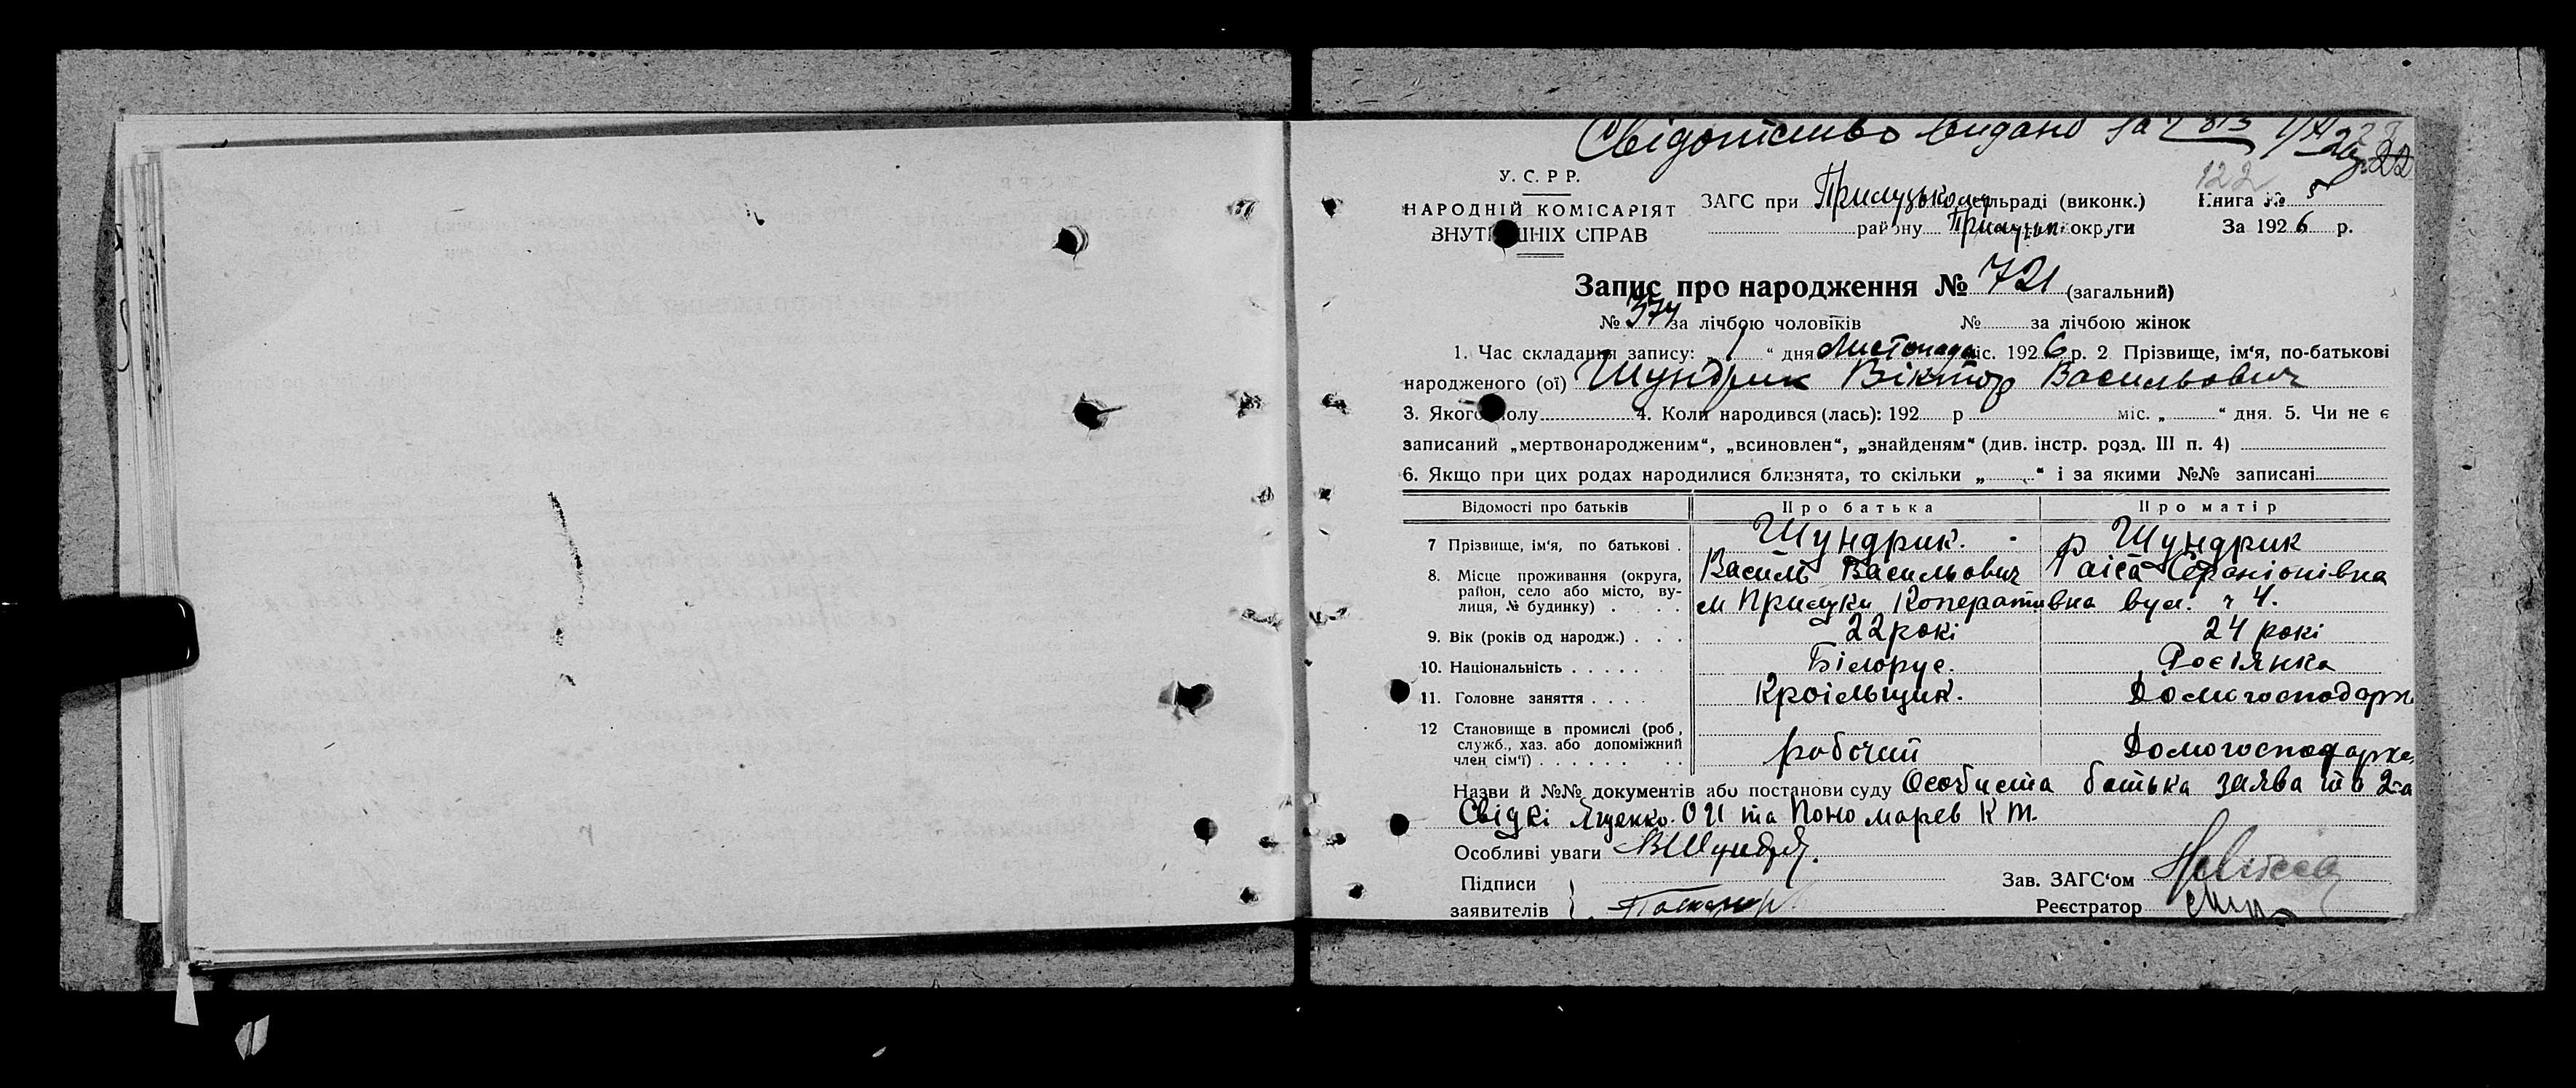 Свідоцтво видано за № 813 1/XI 26 р.
122 22
У. С. Р. Р.
НАРОДНІЙ КОМІСАРІЯТ
ВНУТРІШНІХ СПРАВ
ЗАГС при Прилуцькому сельраді (виконк.)
району Прилуцьк. округи
Книга № 5
За 1926 р.
Запис про народження № 721 (загальний)
№ 374 за лічбою чоловіків № за лічбою жінок
1. Час складання запису: „ 1 “ дня Листопада міс. 1926 р. 2 Прізвище, ім‘я, по-батькові
народженого (ої) Шундрик Віктор Васильович
3. Якого полу 4. Коли народився (лась): 192 р міс. „ “ дня. 5. Чи не є
записаний „мертвонародженим“, „всиновлен“, „знайденям“ (див. інстр. розд. III п. 4)
6. Якщо при цих родах народилися близнята, то скільки „ “ і за якими №№ записані
Відомості про батьків Про батька Про матір
7 Прізвище, ім‘я, по батькові . Шундрик. Шундрик
Василь Васильович Раіса
8. Місце проживання (округа,
район, село або місто, ву-
лиця, № будинку) . . . . м Прилуки Коперативна вул. ч 4.
9. Вік (років од народж.) . . . 22 рокі 24 рокі
10. Національність . . . . . Білорус. Росіянка
11. Головне заняття . . . . Кроільщик. Домогосподарк
12 Становище в промислі (роб,
служб., хаз. або допоміжний
член сім‘ї) . . . . . . . . робочий Домогосподарка
Назви й №№ документів або постанови суду Особиста батька заява та 2-а
Свідкі Яценко О И та Пономарев К Т.
Особливі уваги ВШундр
Підписи
заявителів
Зав. ЗАГС‘ом
Реєстратор